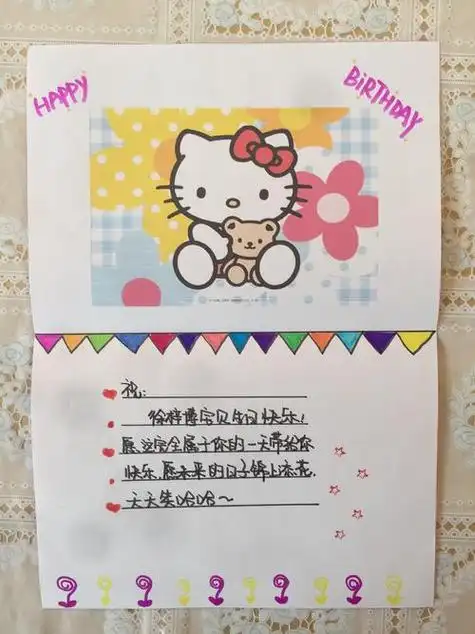 HAPPY
BIRTHDAY
祝:
徐梓博宝贝生日快乐!
愿这完全属于你的一天带给你
快乐,愿未来的日子锦上添花.
天天笑哈哈~